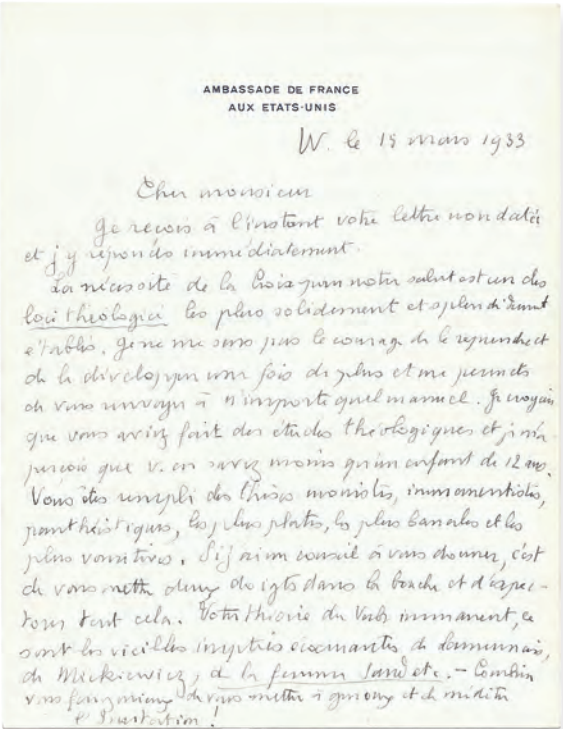 AMBASSADE DE FRANCE
AUX ETATS-UNIS
W. le 15 mars 1933
Cher monsieur
Je reçois à l'instant votre lettre non datée
et j'y réponds immédiatement.
La nécessité de la Croix pour notre salut est un des
loci theologici les plus solidement et splendidement
établis. Je ne me sens pas le courage de le reprendre et
de le développer une fois de plus et me permets
de vous renvoyer à n'importe quel manuel. Je croyais
que vous aviez fait des études théologiques et je m'a
perçois que v. en savez moins qu'un enfant de 12 ans.
Vous êtes rempli des thèses monistes, immanentistes,
panthéistiques, les plus plates, les plus banales et les
plus vomitives. Si j'ai un conseil à vous donner, c'est
de vous mettre deux doigts dans la bouche et d'expec-
torer tout cela. Votre théorie du Verbe immanent, ce
sont les vieilles inepties écœurantes de Lamennais,
de Mickiewicz, de la femme Sand etc. – Combien
vous feriez mieux de vous mettre à genoux et de méditer
l'Incarnation !